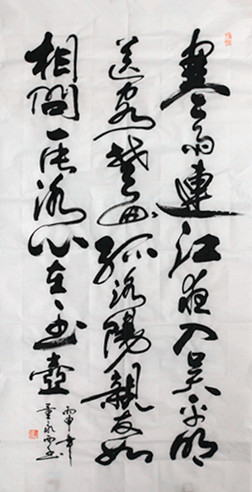 寒雨連江夜入吴平明
送客楚山孤洛陽親友如
相問一片冰心在玉壺
丙申年